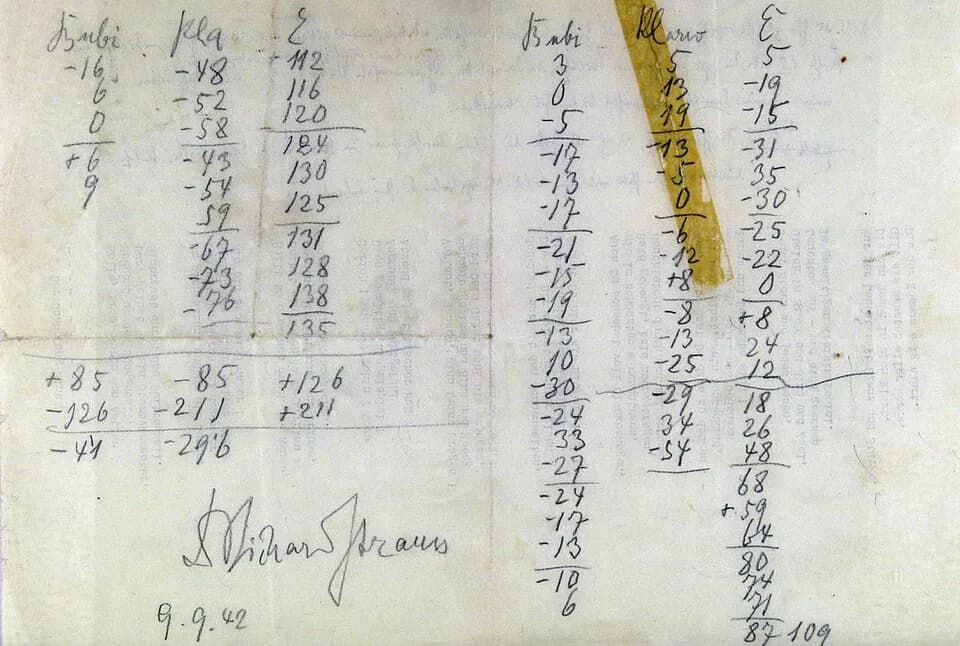 Bubi Kla E
-16 -48 +112
6 -52 116
0 -58 120
+6 -43 124
9 -54 130
59 125
-67 131
-73 128
-76 138
135
+85 -85 +126
-126 -211 +211
-41 -296
Dr Richard Strauss
9.9.42
Bubi E
3 5 5
0 13 -19
-5 19 -15
-17 -13 -31
-13 -5 35
-17 0 -30
-21 -6 -25
-15 -12 -22
-19 +8 0
-13 -8 +8
10 -13 24
-30 -25 12
-24 -29 18
33 34 26
-27 -54 48
-24 68
-17 +59
-13 64
-10 80
6 74
71
87 109